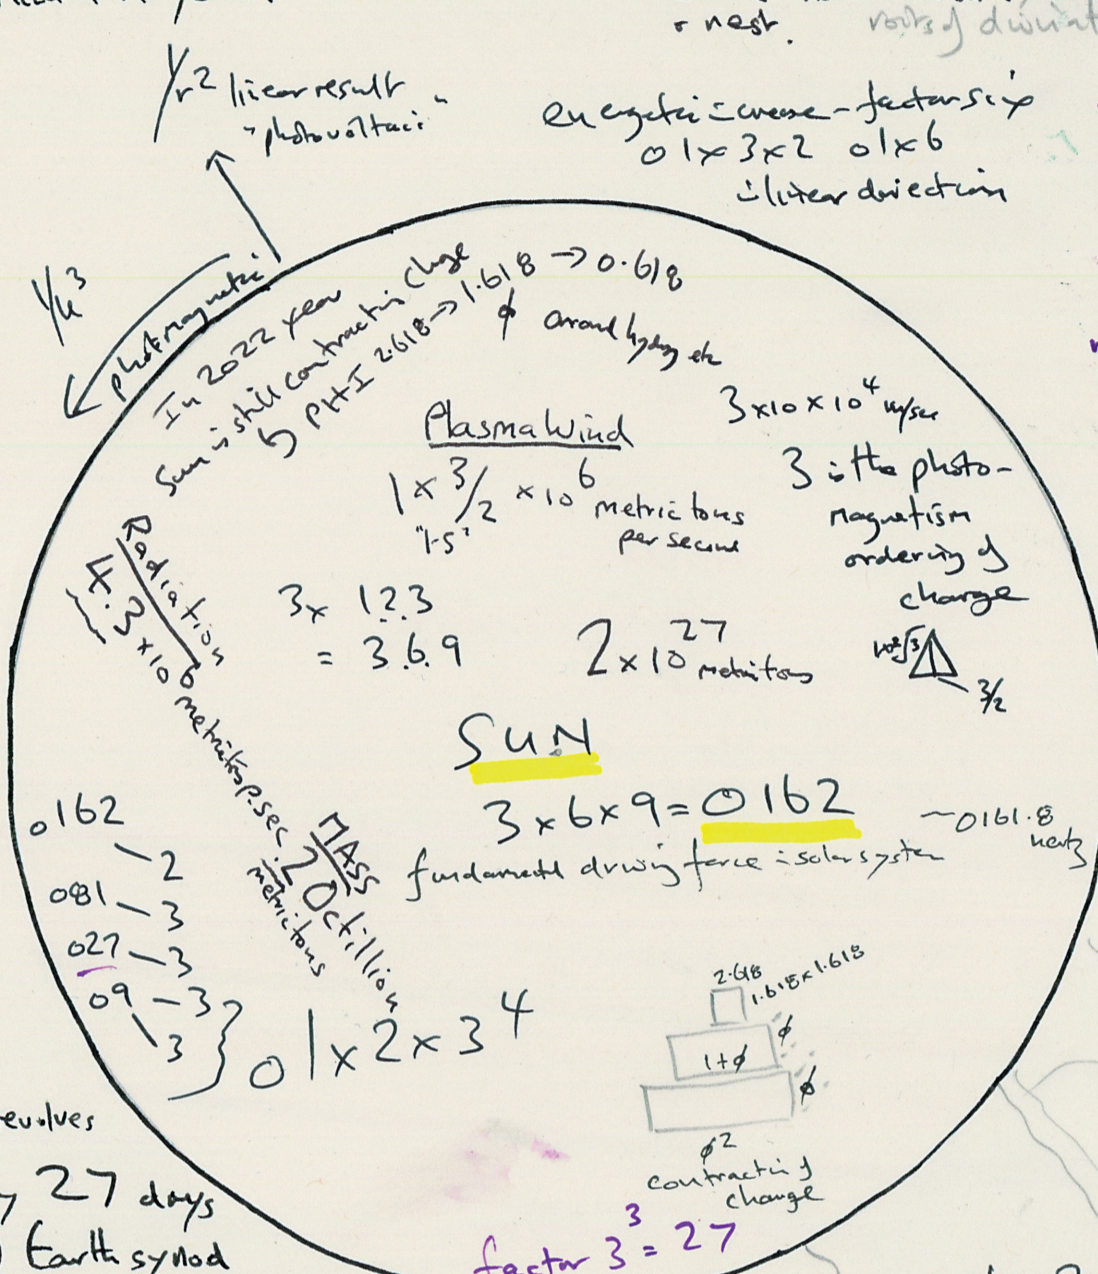 nest.
roots of
1/r2 linear result
"photovoltaic"
energetic increase - factor six
01x3x2 01x6
in linear direction
1/r3
photomagnetic
In 2022 year
Sun is still contracting charge
by PHI 2.618 → 1.618 → 0.618
ϕ around hydrog etc
Plasma Wind
1 x 3/2 x 10^6 metric tons
"1.5" per second
3x10x10^4 m/sec
3 is the photo-
magnetism
ordering of
charge
√3
3/2
Radiation
4.3 x 10^6 metric tons p.sec.
3x 1.2.3
= 3.6.9
2x10^27 metric tons
SUN
3x6x9 = 0162
~0161.8
hertz
fundamental driving force in solar system
MASS
2 Octillion
metric tons
0162
2
081 – 3
027 – 3
09 – 3
3
} 01x2x3^4
2.618
1.618x1.618
1+ϕ
ϕ
ϕ
ϕ2
contracting
charge
evolves
27 days
Earth synod
factor 3^3 = 27